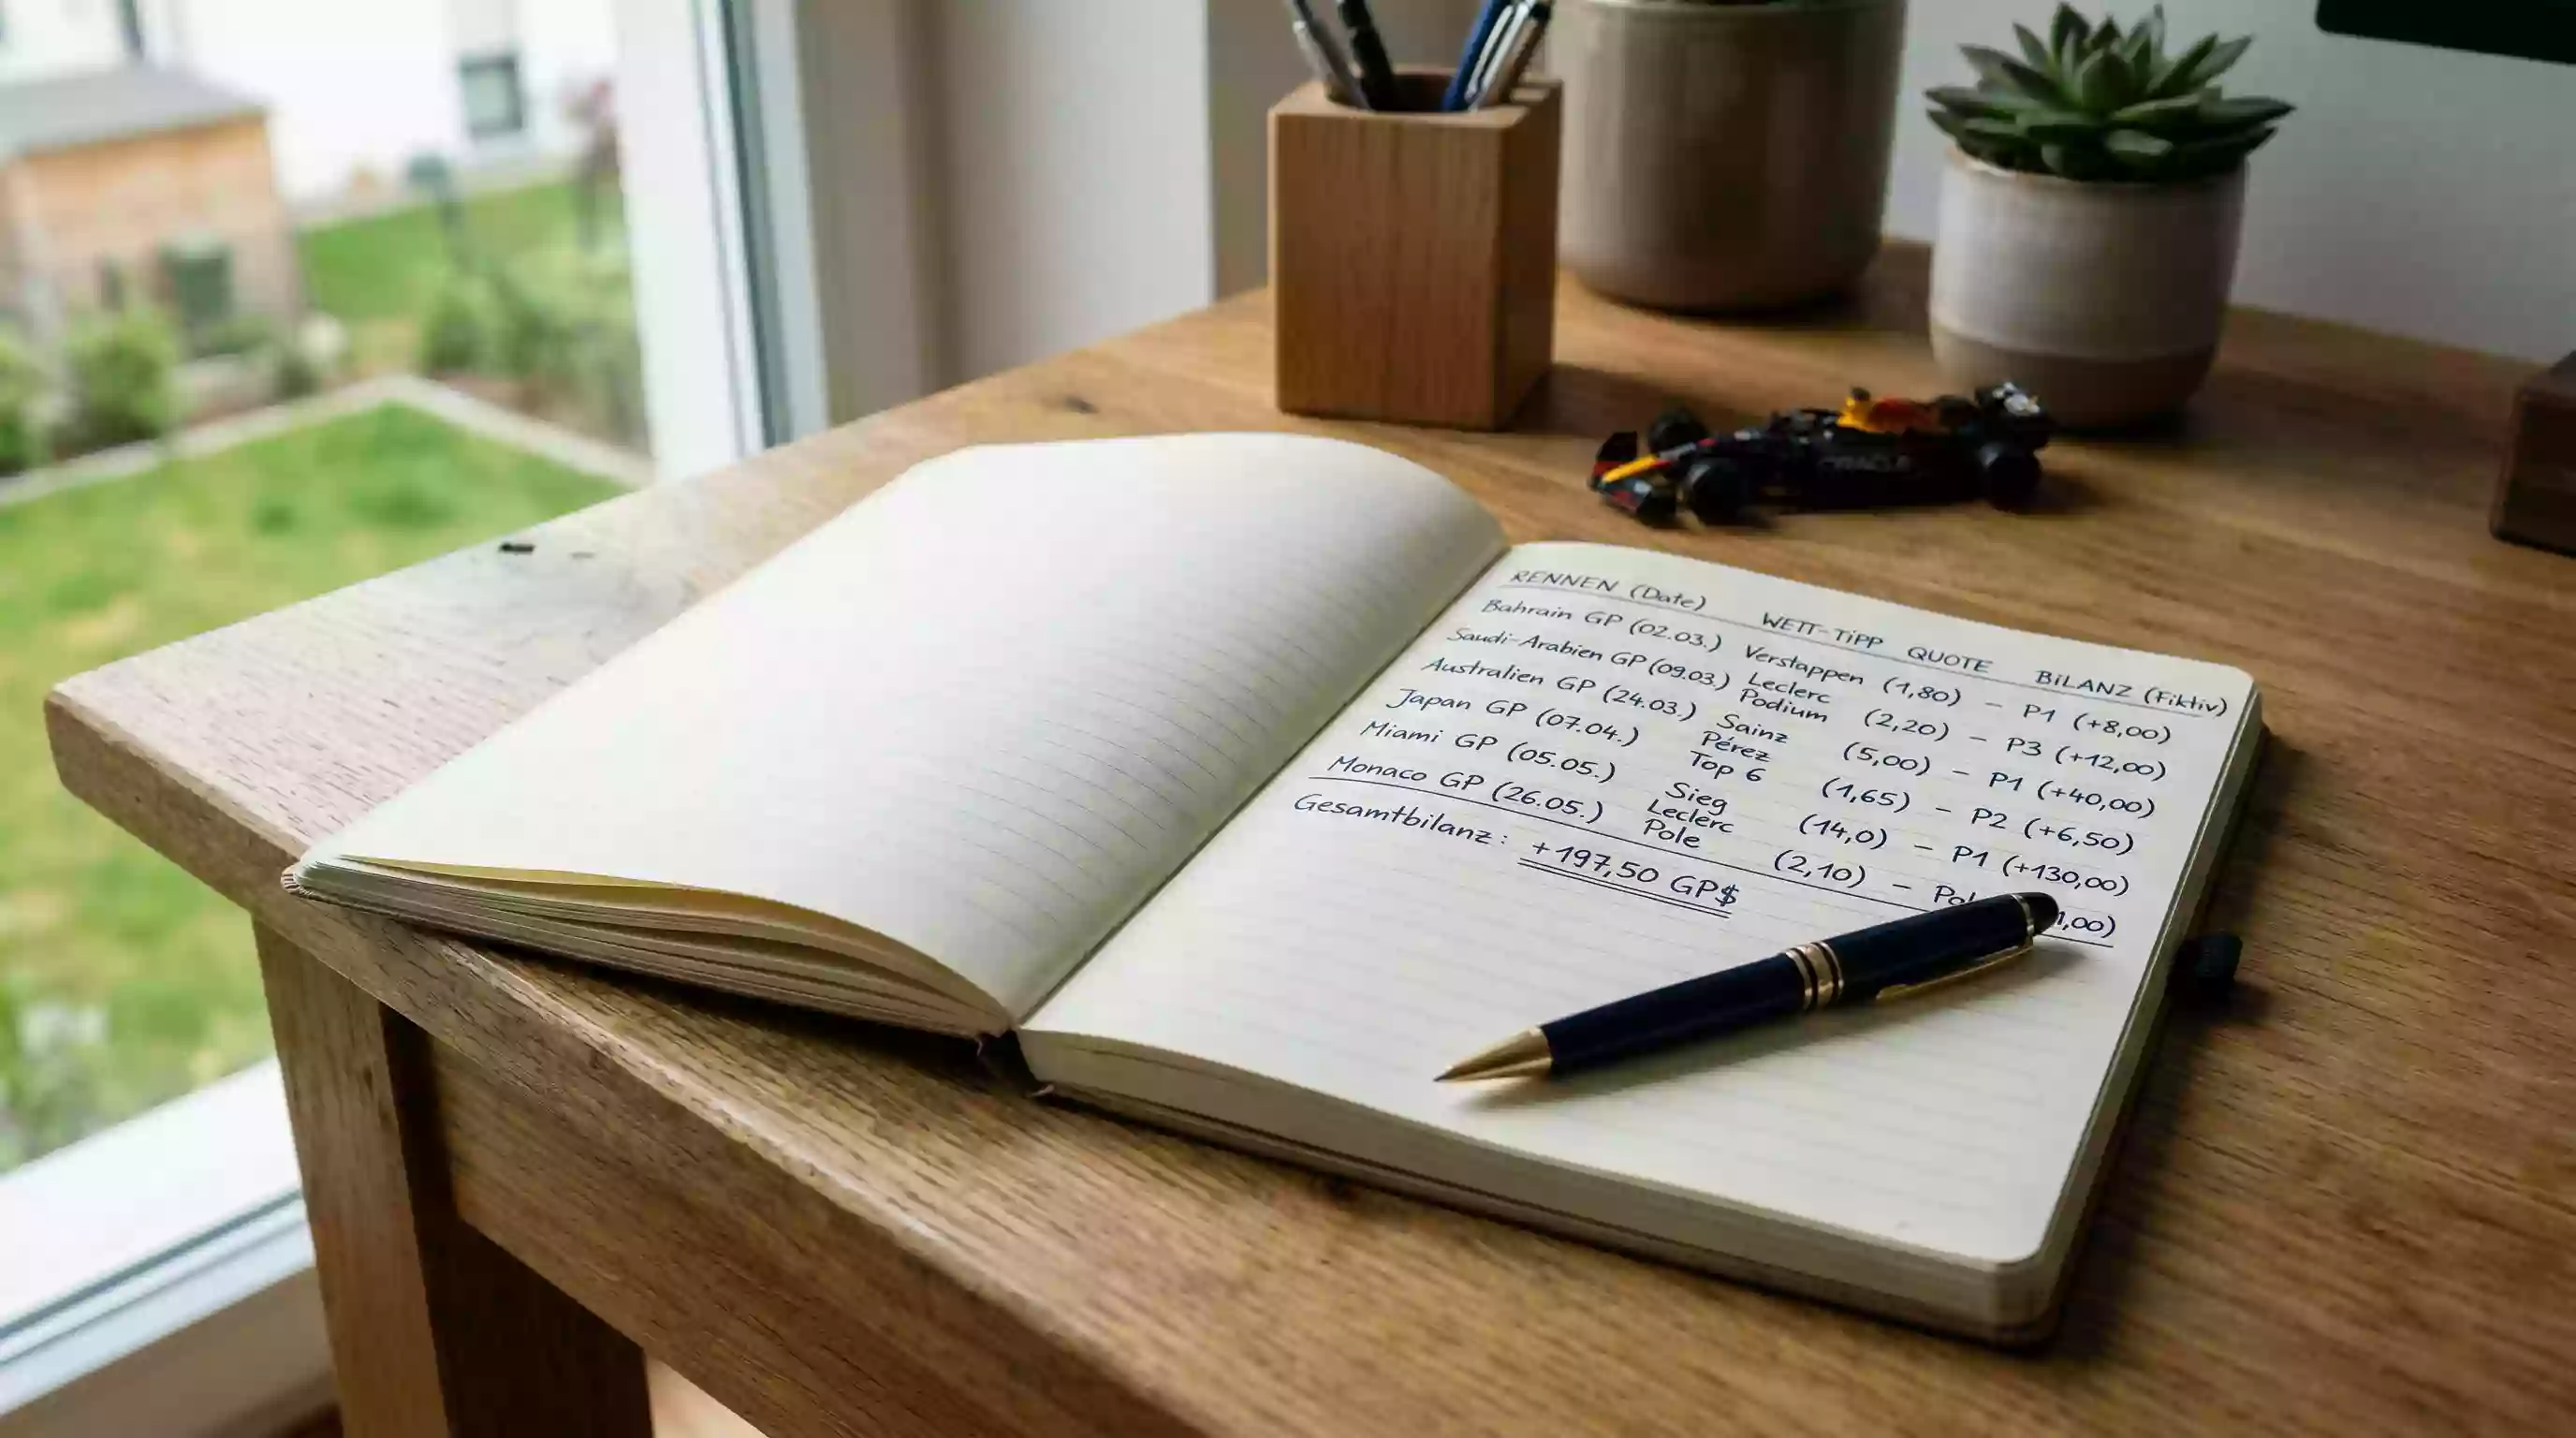 RENNEN (Date) WETT-TiPP QUOTE BiLANZ (Fiktiv)
Bahrain GP (02.03.) Verstappen (1,80) – P1 (+8,00)
Saudi-Arabien GP (09.03.) Leclerc Podium (2,20) – P3 (+12,00)
Australien GP (24.03.) Sainz (5,00) – P1 (+40,00)
Japan GP (07.04.) Pérez Top 6 (1,65) – P2 (+6,50)
Miami GP (05.05.) Sieg (14,0) – P1 (+130,00)
Monaco GP (26.05.) Leclerc Pole (2,10) – Pol 1,00)
Gesamtbilanz: +197,50 GP$